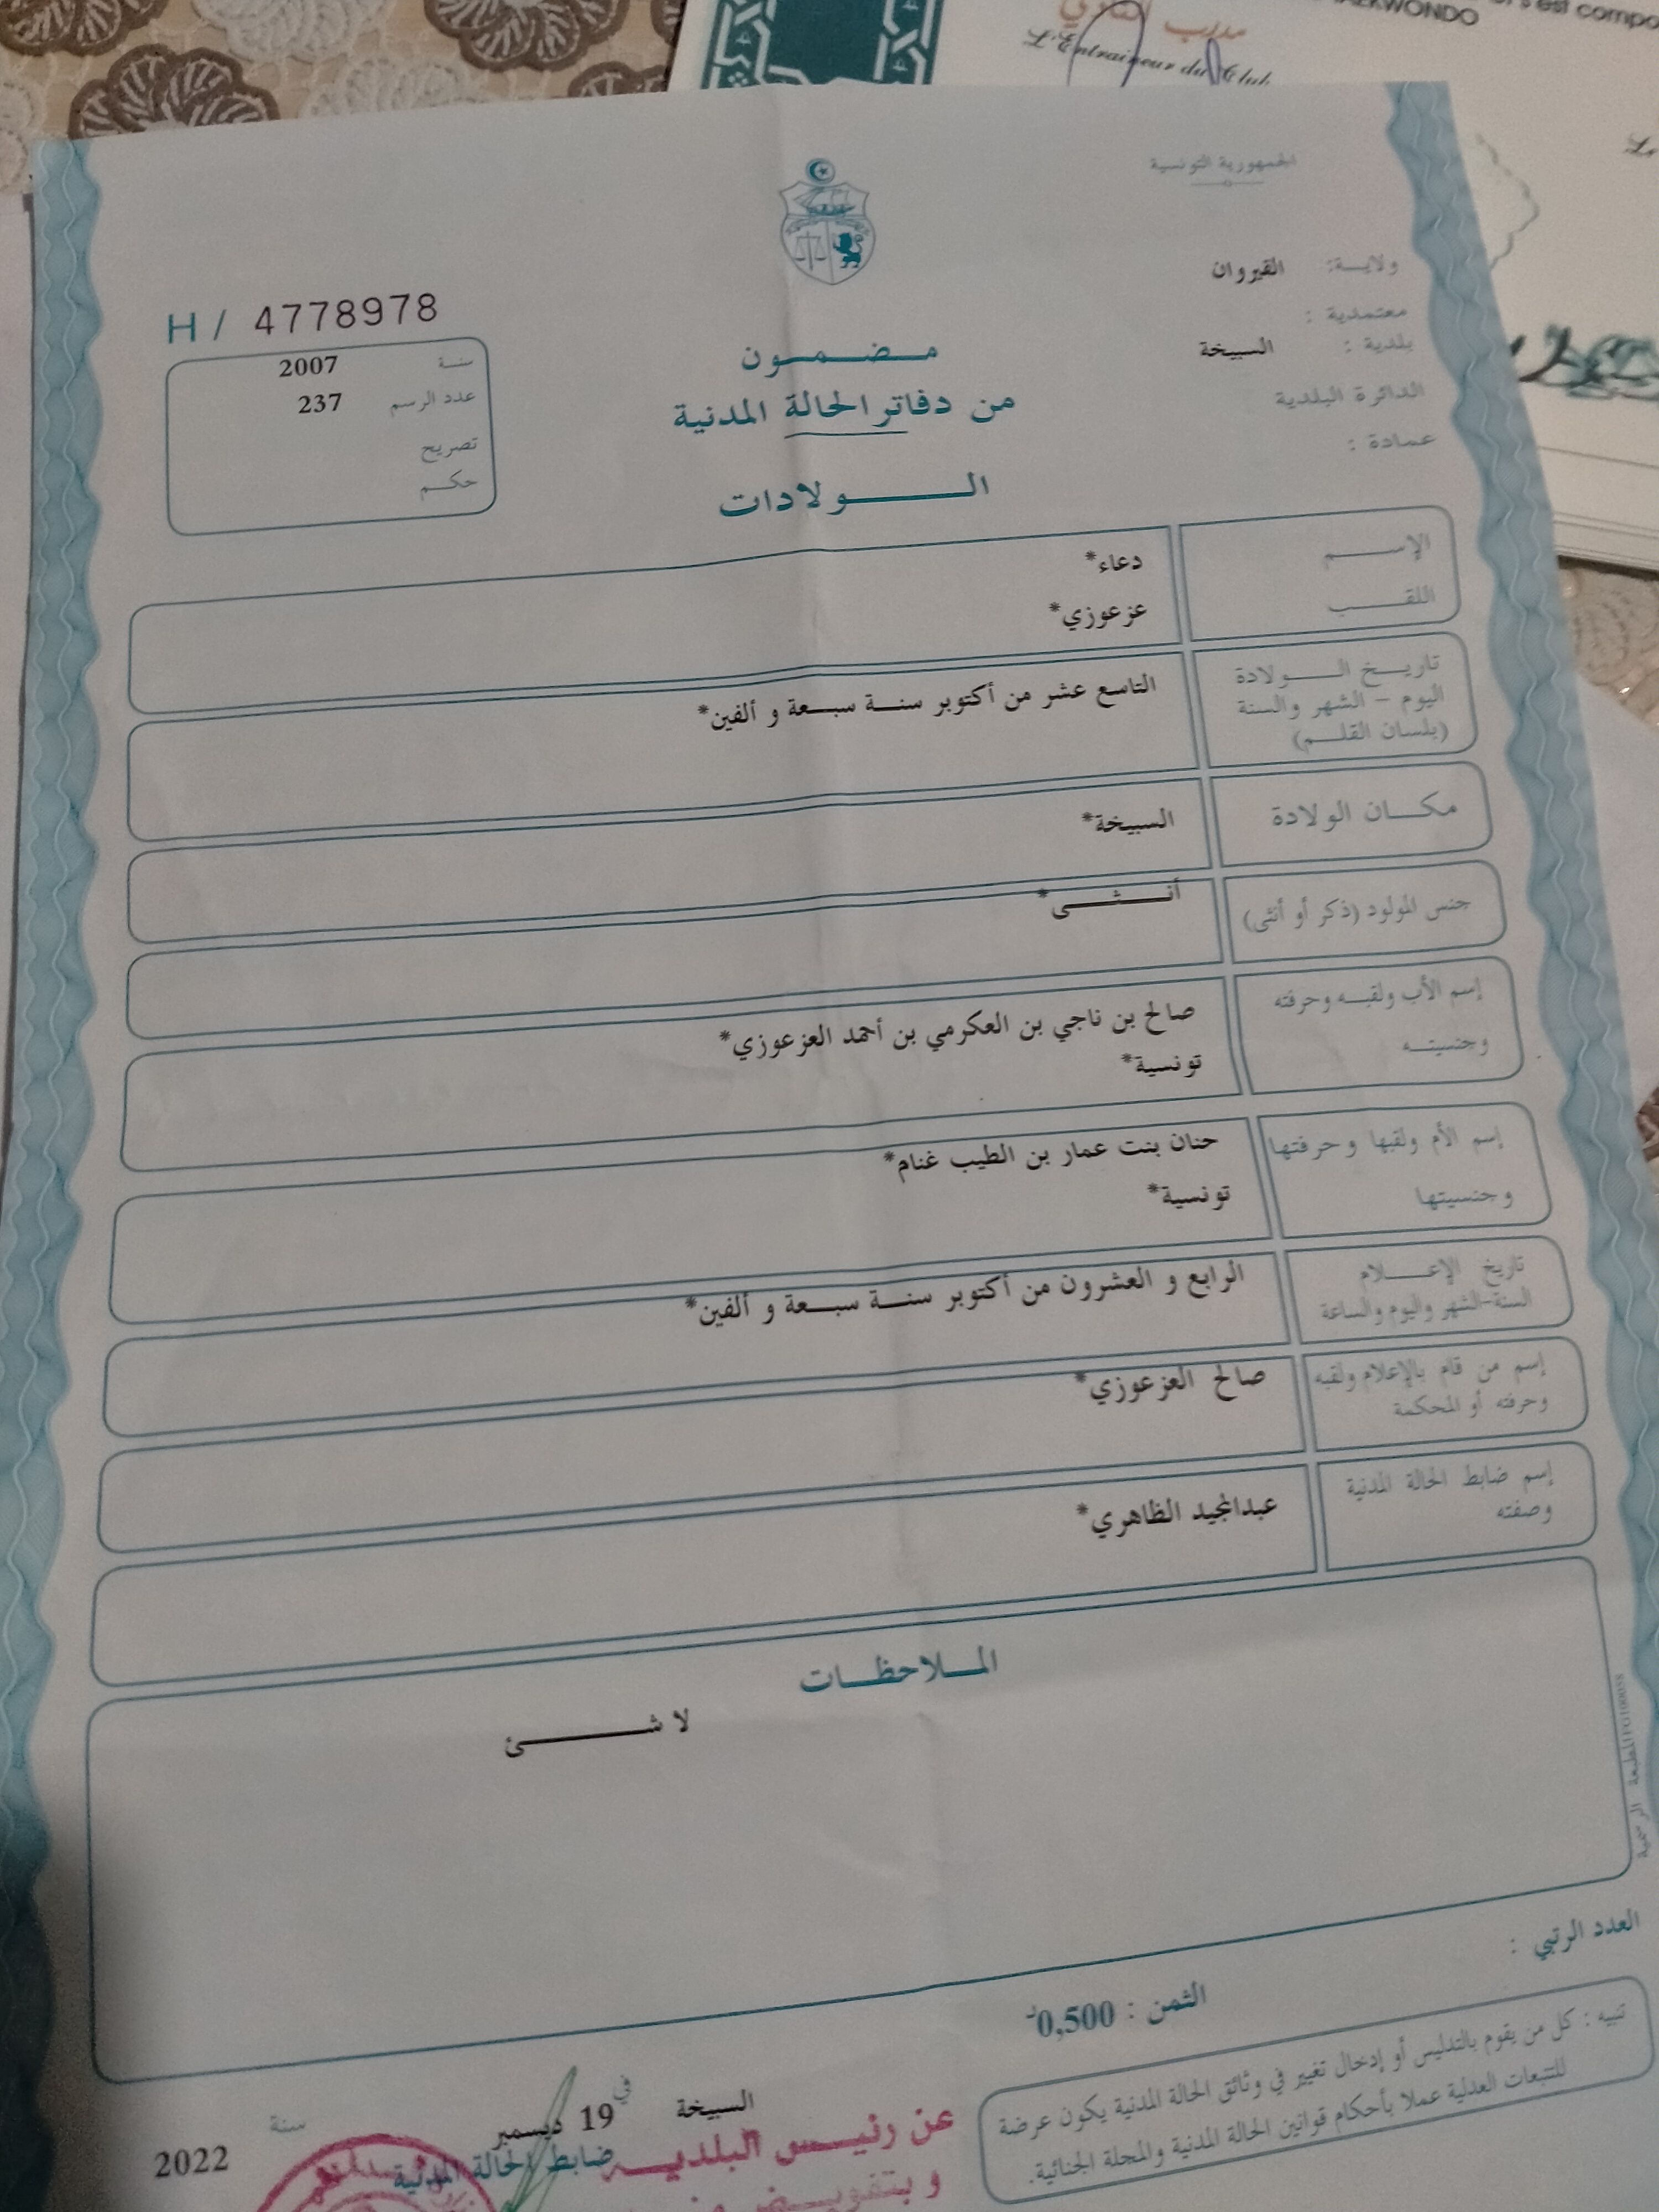 مدرب النادي
L'Entraineur du Club
TAEKWONDO
s'est compo
الجمهورية التونسية
ولايـــة: القيروان
معتمدية :
بلدية : السبيخة
الدائرة البلدية
عمادة :
H / 4778978
سنة 2007
عدد الرسم 237
تصريح
حكم
مضمون
من دفاتر الحالة المدنية
الولادات
الإسم دعاء*
اللقب عزعوزي*
تاريخ الولادة
اليوم - الشهر والسنة
(بلسان القلم)
التاسع عشر من أكتوبر سنة سبعة و ألفين*
مكان الولادة السبيخة*
جنس المولود (ذكر أو أنثى) أنثى*
إسم الأب ولقبه وحرفته صالح بن ناجي بن العكرمي بن أحمد العزعوزي*
وجنسيته تونسية*
إسم الأم ولقبها وحرفتها حنان بنت عمار بن الطيب غنام*
وجنسيتها تونسية*
تاريخ الإعلام
السنة-الشهر واليوم والساعة
الرابع و العشرون من أكتوبر سنة سبعة و ألفين*
إسم من قام بالإعلام ولقبه
وحرفته أو المحكمة
صالح العزعوزي*
إسم ضابط الحالة المدنية
وصفته
عبدالمجيد الظاهري*
الملاحظات
لا شئ
المطبعة الرسمية
العدد الرتبي :
الثمن : 0,500د
تنبيه : كل من يقوم بالتدليس أو إدخال تغيير في وثائق الحالة المدنية يكون عرضة
للتتبعات العدلية عملا بأحكام قوانين الحالة المدنية والمجلة الجنائية.
السبيخة في 19 ديسمبر سنة 2022
ضابط الحالة المدنية
عن رئيس البلدية
و بتفويض